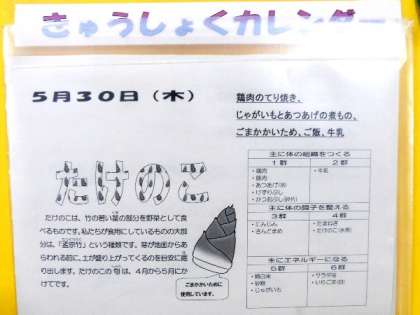 きゅうしょくカレンダー
5月30日（木）
鶏肉のてり焼き、
じゃがいもとあつあげの煮もの、
ごまかかいため、ご飯、牛乳
たけのこ
たけのこは、竹の若い茎の部分を野菜として食
べるものです。私たちが食用にしているものの大部
分は、「孟宗竹」という種類です。芽が地面からあ
らわれる前に、土が盛り上がってくるのを目安に掘
り出します。たけのこの旬は、4月から5月にか
けてです。
ごまかかいために
使用しています。
主に体の組織をつくる
1群 2群
・鶏肉 ・牛乳
・豚肉
・あつあげ(水)
・けずりぶし
・かつおぶし(砕片)
主に体の調子を整える
3群 4群
・にんじん ・たまねぎ
・さんどまめ ・たけのこ(水煮)
主にエネルギーになる
5群 6群
・精白米 ・サラダ油
・砂糖 ・いりごま(白)
・じゃがいも